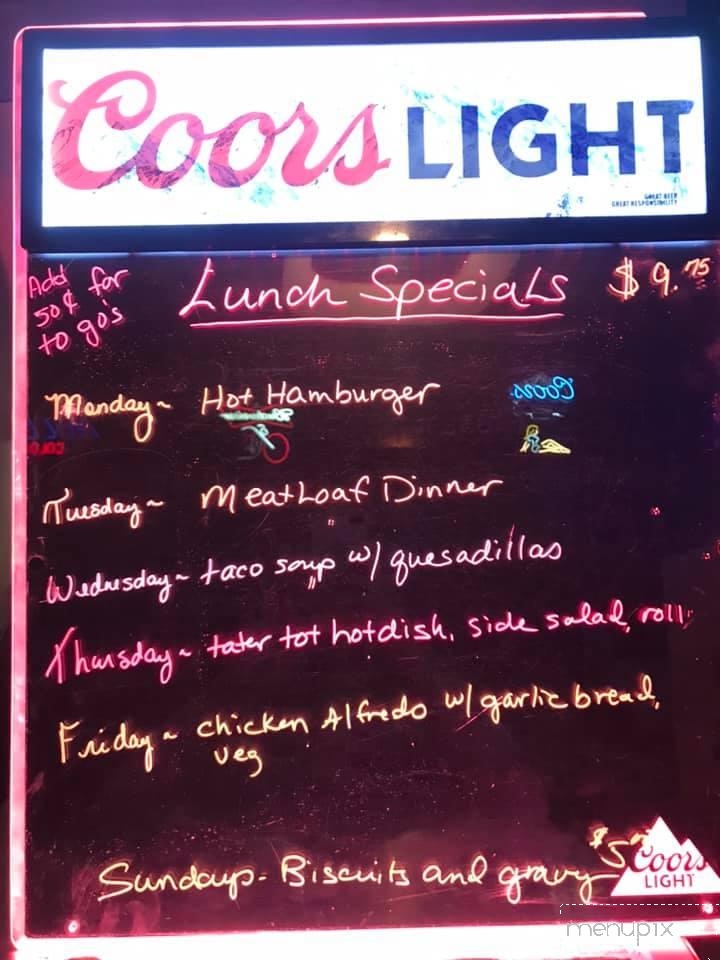 Coors LIGHT
GREAT BEER
GREAT RESPONSIBILITY
Add 50¢ for to go's
Lunch Specials $9.75
Monday~ Hot Hamburger
Coors
Tuesday~ Meatloaf Dinner
Wednesday~ taco soup w/ quesadillas
Thursday~ tater tot hotdish, side salad, roll
Friday~ chicken Alfredo w/ garlic bread,
veg
Sundays- Biscuits and gravy $5
Coors
LIGHT
menupix